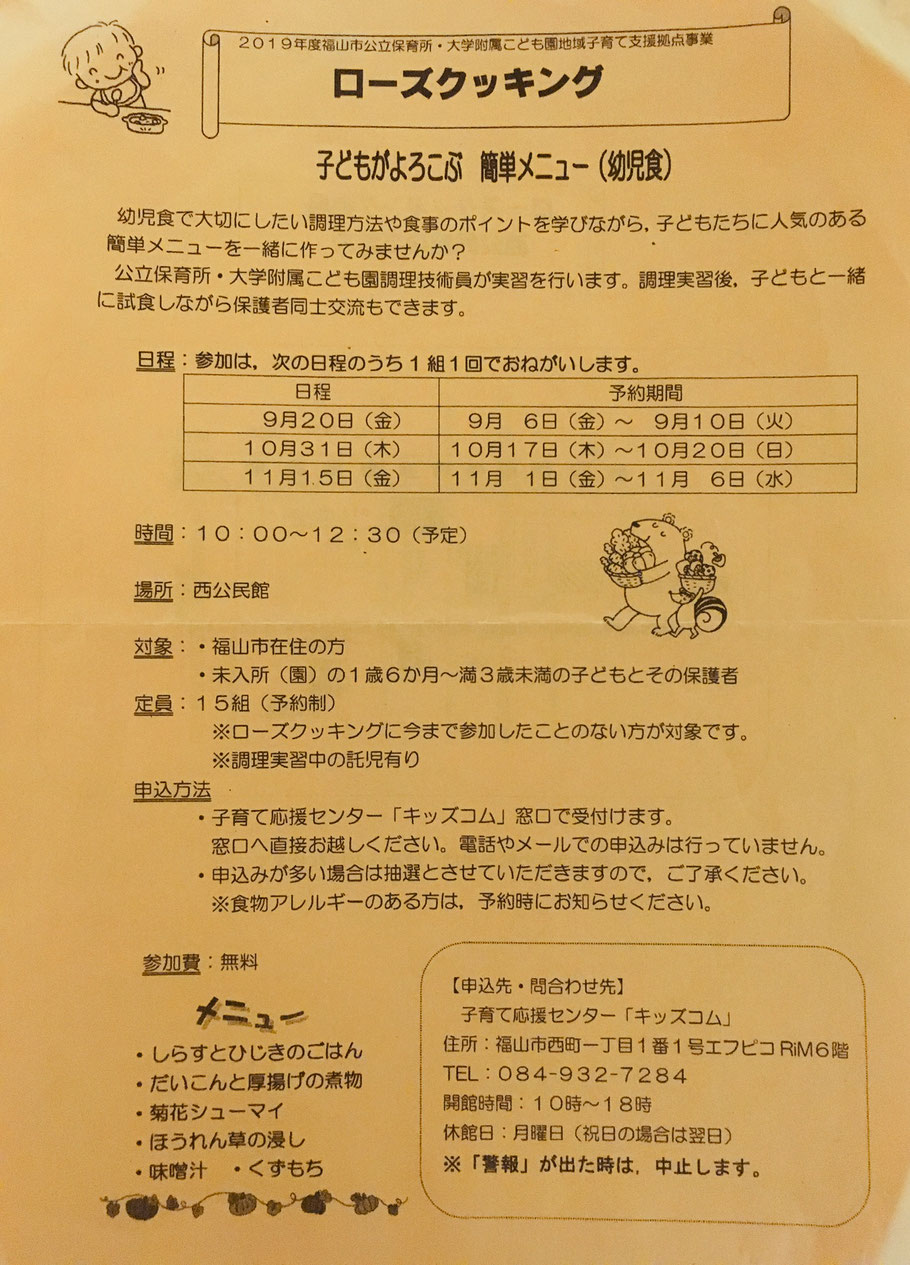 2019年度福山市公立保育所・大学附属こども園地域子育て支援拠点事業
ローズクッキング
子どもがよろこぶ 簡単メニュー（幼児食）
幼児食で大切にしたい調理方法や食事のポイントを学びながら，子どもたちに人気のある
簡単メニューを一緒に作ってみませんか？
公立保育所・大学附属こども園調理技術員が実習を行います。調理実習後，子どもと一緒
に試食しながら保護者同士交流もできます。
日程：参加は，次の日程のうち１組１回でおねがいします。
日程 予約期間
９月２０日（金） ９月 ６日（金）～ ９月１０日（火）
１０月３１日（木） １０月１７日（木）～１０月２０日（日）
１１月１５日（金） １１月 １日（金）～１１月 ６日（水）
時間：１０：００～１２：３０（予定）
場所：西公民館
対象：・福山市在住の方
・未入所（園）の１歳６か月～満３歳未満の子どもとその保護者
定員：１５組（予約制）
※ローズクッキングに今まで参加したことのない方が対象です。
※調理実習中の託児有り
申込方法
・子育て応援センター「キッズコム」窓口で受付けます。
窓口へ直接お越しください。電話やメールでの申込みは行っていません。
・申込みが多い場合は抽選とさせていただきますので，ご了承ください。
※食物アレルギーのある方は，予約時にお知らせください。
参加費：無料
メニュー
・しらすとひじきのごはん
・だいこんと厚揚げの煮物
・菊花シューマイ
・ほうれん草の浸し
・味噌汁 ・くずもち
【申込先・問合わせ先】
子育て応援センター「キッズコム」
住所：福山市西町一丁目１番１号エフピコRiM６階
TEL：０８４-９３２-７２８４
開館時間：１０時～１８時
休館日：月曜日（祝日の場合は翌日）
※「警報」が出た時は，中止します。